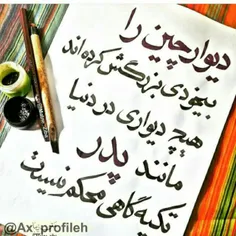 دیوار چین را
بیخودی بزرگش کرده‌اند
هیچ دیواری در دنیا
مانند پدر
تکیه گاهی محکم نیست
@Ax-profileh